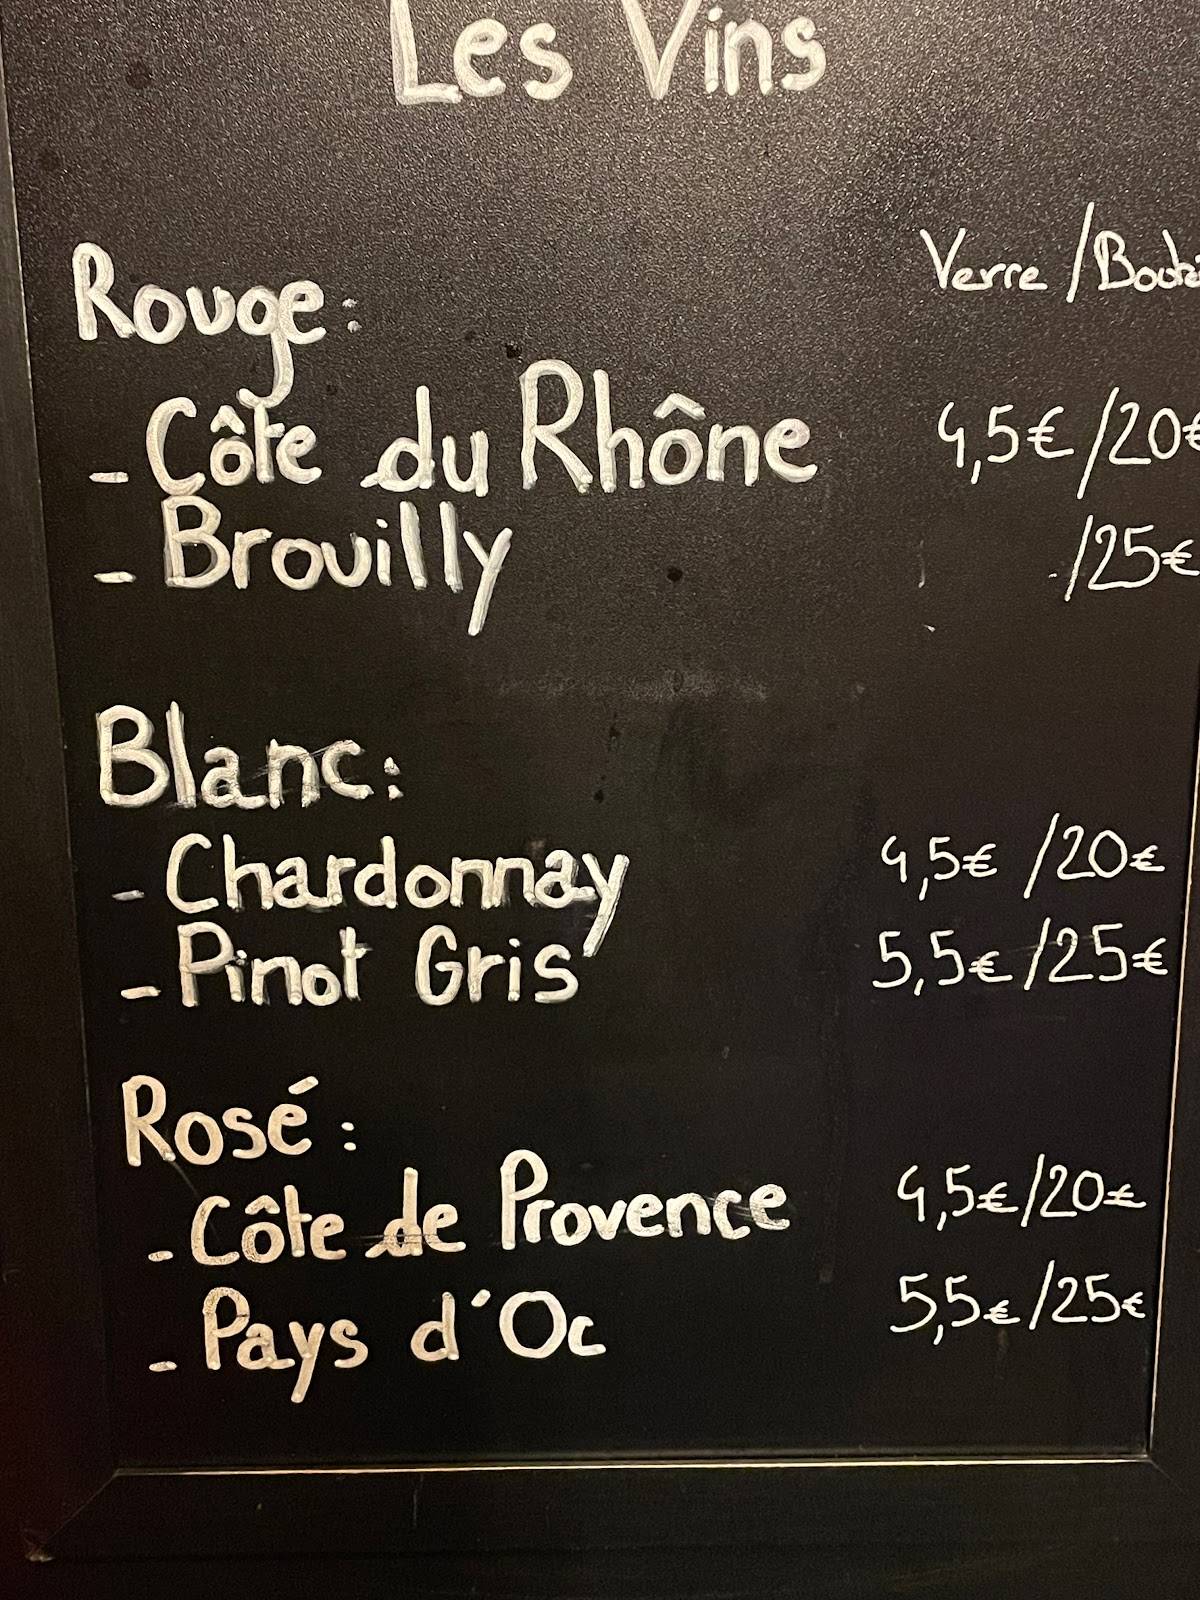 Les Vins
Rouge: Verre /Boutei
- Côte du Rhône 4,5€ /20€
- Brouilly /25€
Blanc:
- Chardonnay 4,5€ /20€
- Pinot Gris 5,5€ /25€
Rosé:
- Côte de Provence 4,5€ /20€
- Pays d'Oc 5,5€ /25€